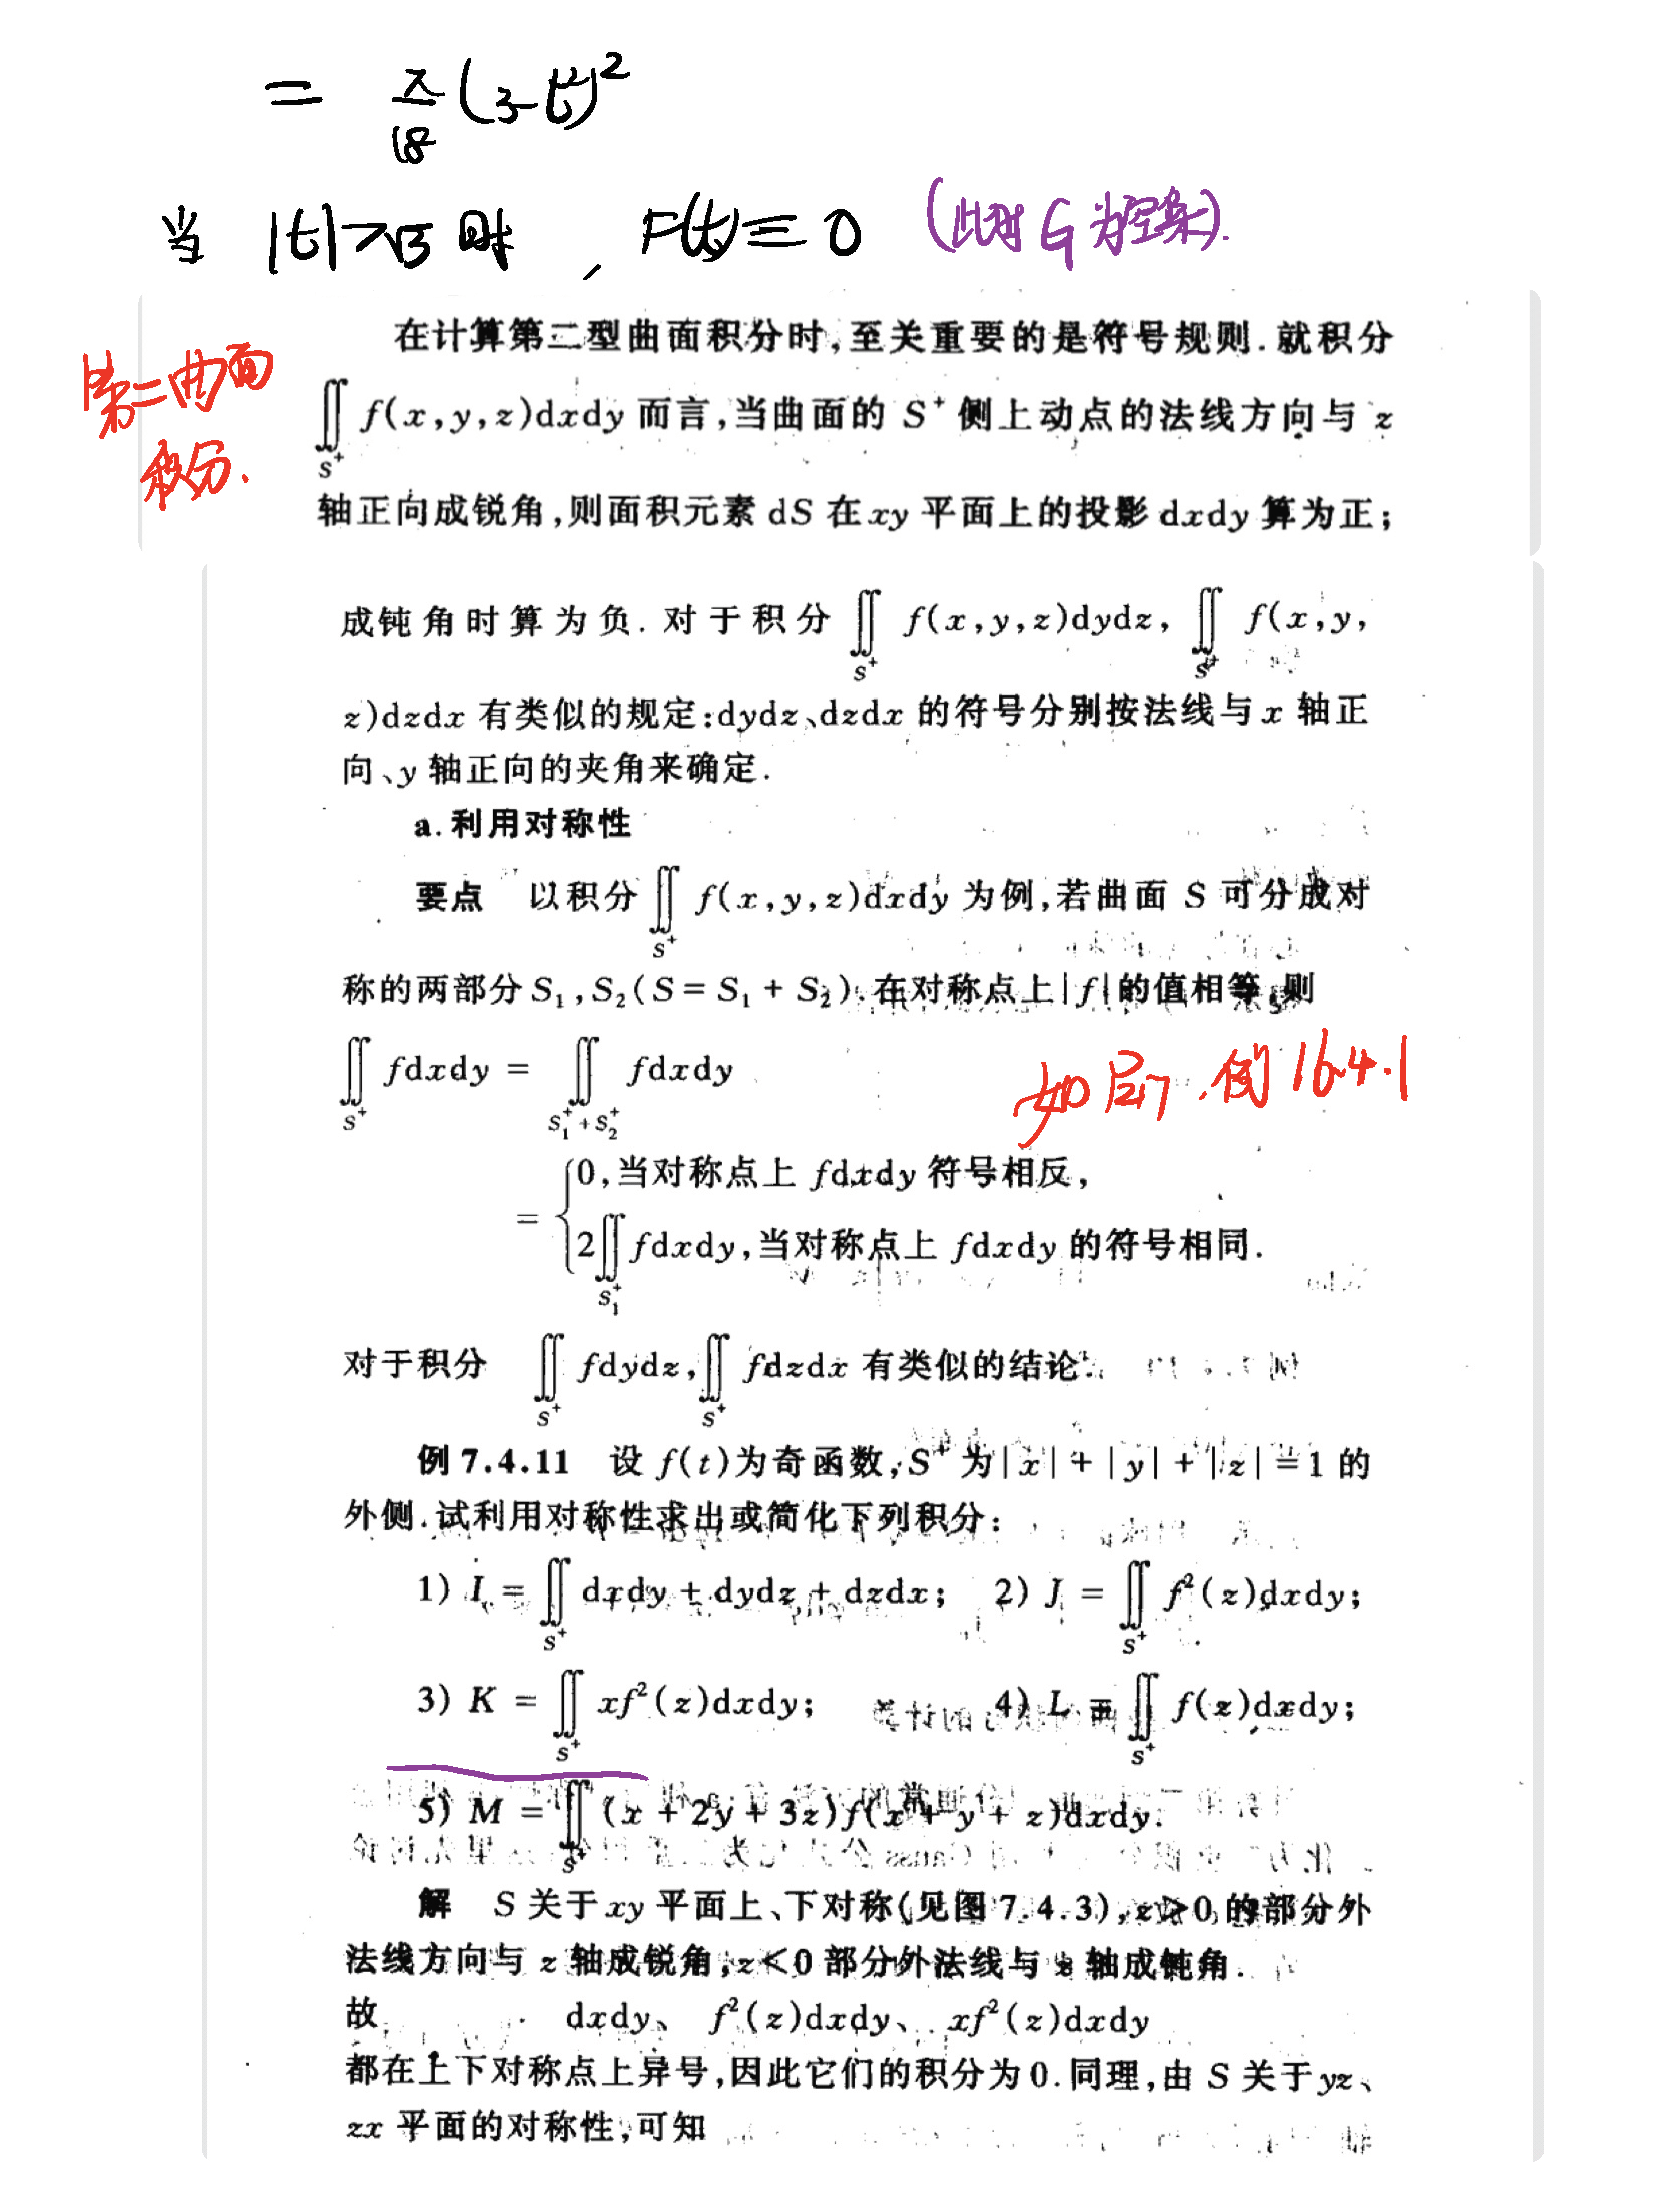 = π/18 (3-t²)²
当 |t|>√3 时, F(t)≡0 (此时G为空集).
第二曲面
积分.
在计算第二型曲面积分时,至关重要的是符号规则.就积分
∬_{S⁺} f(x,y,z)dxdy 而言,当曲面的 S⁺ 侧上动点的法线方向与 z
轴正向成锐角,则面积元素 dS 在 xy 平面上的投影 dxdy 算为正;
成钝角时算为负.对于积分 ∬_{S⁺} f(x,y,z)dydz, ∬_{S⁺} f(x,y,
z)dzdx 有类似的规定:dydz、dzdx 的符号分别按法线与 x 轴正
向、y 轴正向的夹角来确定.
a.利用对称性
要点 以积分 ∬_{S⁺} f(x,y,z)dxdy 为例,若曲面 S 可分成对
称的两部分 S₁,S₂(S = S₁ + S₂).在对称点上|f|的值相等,则
∬_{S⁺} fdxdy = ∬_{S₁⁺+S₂⁺} fdxdy
如后,例16.4.1
= { 0,当对称点上 fdxdy 符号相反,
2∬_{S₁⁺} fdxdy,当对称点上 fdxdy 的符号相同.
对于积分 ∬_{S⁺} fdydz, ∬_{S⁺} fdzdx 有类似的结论.
例 7.4.11 设 f(t)为奇函数,S⁺ 为|x| + |y| + |z| = 1 的
外侧.试利用对称性求出或简化下列积分:
1) I = ∬_{S⁺} dxdy + dydz + dzdx; 2) J = ∬_{S⁺} f²(z)dxdy;
3) K = ∬_{S⁺} xf²(z)dxdy; 4) L = ∬_{S⁺} f(z)dxdy;
5) M = ∬_{S⁺} (x + 2y + 3z)f(x + y + z)dxdy.
解 S 关于 xy 平面上、下对称(见图 7.4.3),z>0 的部分外
法线方向与 z 轴成锐角,z<0 部分外法线与 z 轴成钝角.
故 dxdy、 f²(z)dxdy、 xf²(z)dxdy
都在上下对称点上异号,因此它们的积分为 0.同理,由 S 关于 yz、
zx 平面的对称性,可知